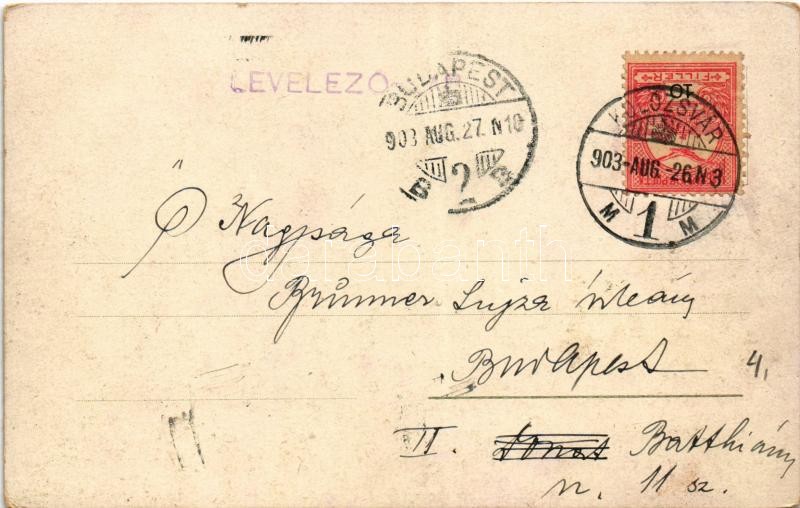 LEVELEZŐ
BUDAPEST
903 AUG. 27. N10
2
B B
FILLÉR
10
KOLOZSVÁR
903-AUG.-26.N3
M 1 M
Ő Nagysága
Brünner Lujza úrleány
Budapest
4.
II. Donat Batthiány
u. 11 sz.
darabanth